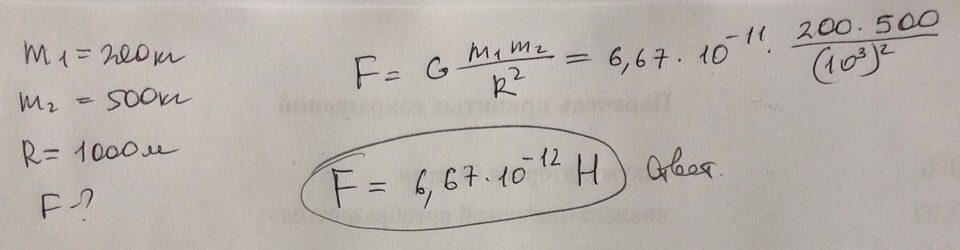 m₁ = 200кг
m₂ = 500кг
R = 1000м
F - ?
F = G \frac{m₁ m₂}{R²} = 6,67 · 10⁻¹¹ · \frac{200 · 500}{(10³)²}
F = 6,67 · 10⁻¹² Н Ответ.
Перечень принятых сокращений